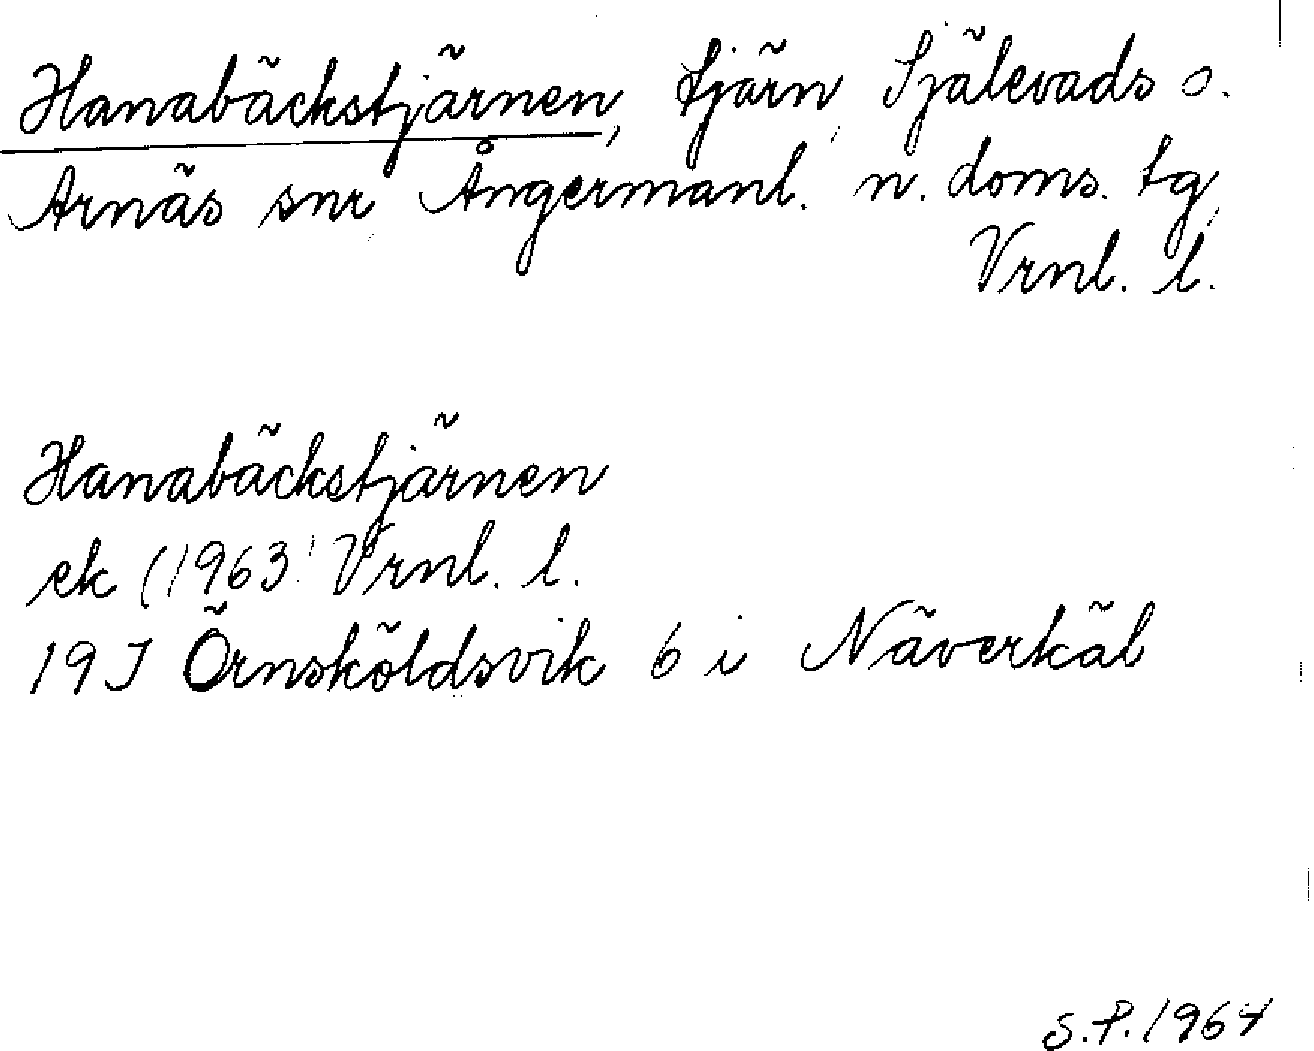 Hanabäckstjärnen, tjärn, Själevads o.
Arnäs snr, Ångermanl. n. doms. tg,
Vrnl. l.
Hanabäckstjärnen
ek (1963) Vrnl. l.
19J Örnsköldsvik 6 i Näverkäl
S.P. 1964